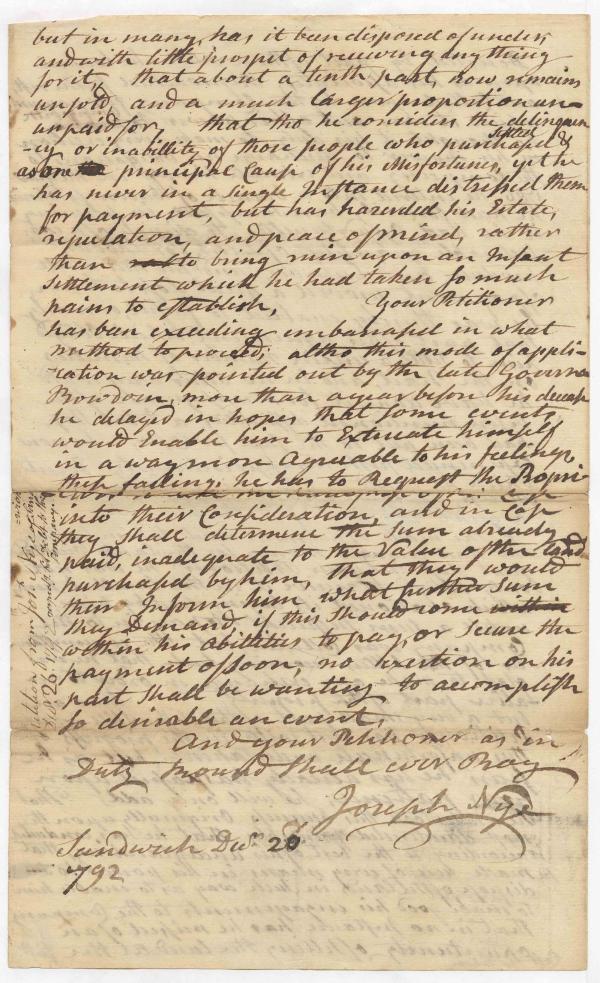 but in many, has it been disposed of under,
and with little prospet of receiving any thing
for it, that about a tenth part, now remains
unsold, and a much larger proportion un-
unpaid for, that tho he considers the delinquen
cy or inabillity of those people who purchased & settled
as one principal Cause of his Misfortunes, yet he
has never in a Single Instance distressed them
for payment, but has hazerded his Estate,
reputation, and peace of mind, rather
than to bring ruin upon an Infant
Settlement which he had taken so much
pains to establish, Your Petitioner
has ben exceeding embarrased in what
method to proceed; altho this mode of appli-
cation was pointed out by the late Governor
Bowdoin, more than a year before his decease
he delayed in hopes that some events,
would Enable him to Extricate himself
in a way more Agreable to his feelings,
these failing, he has to Request the Propri-
into their Consideration, and in Case
they Shall determine the Sum already
paid, inadequate to the Value of the Land
purchased by him, that they would
then Inform him what further Sum
they Demand, if this Should come within
within his Abillities to pay, or Secure the
payment of soon, no exertion on his
part Shall be wanting to accomplish
so desirable an event,
And your Petitioner as in
Duty Bound Shall ever Pray
Joseph Nye
Sandwich Decr 20
792
Petition from Joseph Nye
26